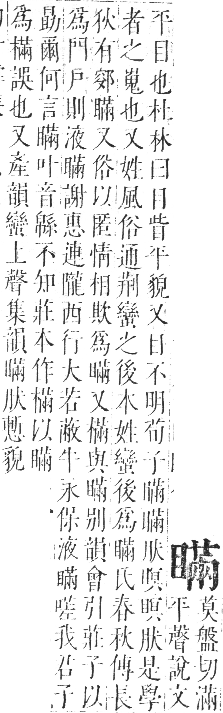 瞞
莫盤切滿
平聲說文
平目也杜林曰目眥平貌又目不明荀子瞞瞞肰瞑瞑肰是學
者之嵬也又姓風俗通荆蠻之後本姓蠻後爲瞞氏春秋傳長
狄有鄋瞞又俗以匿情相欺爲瞞又樠與瞞別韻會引莊子以
爲門戸則液瞞謝惠連隴西行大若敝牛永保液瞞嗟我君子
勗爾何言瞞叶音緜不知莊本作樠以瞞
爲樠誤也又產韻蠻上聲集韻瞞肰慙貌